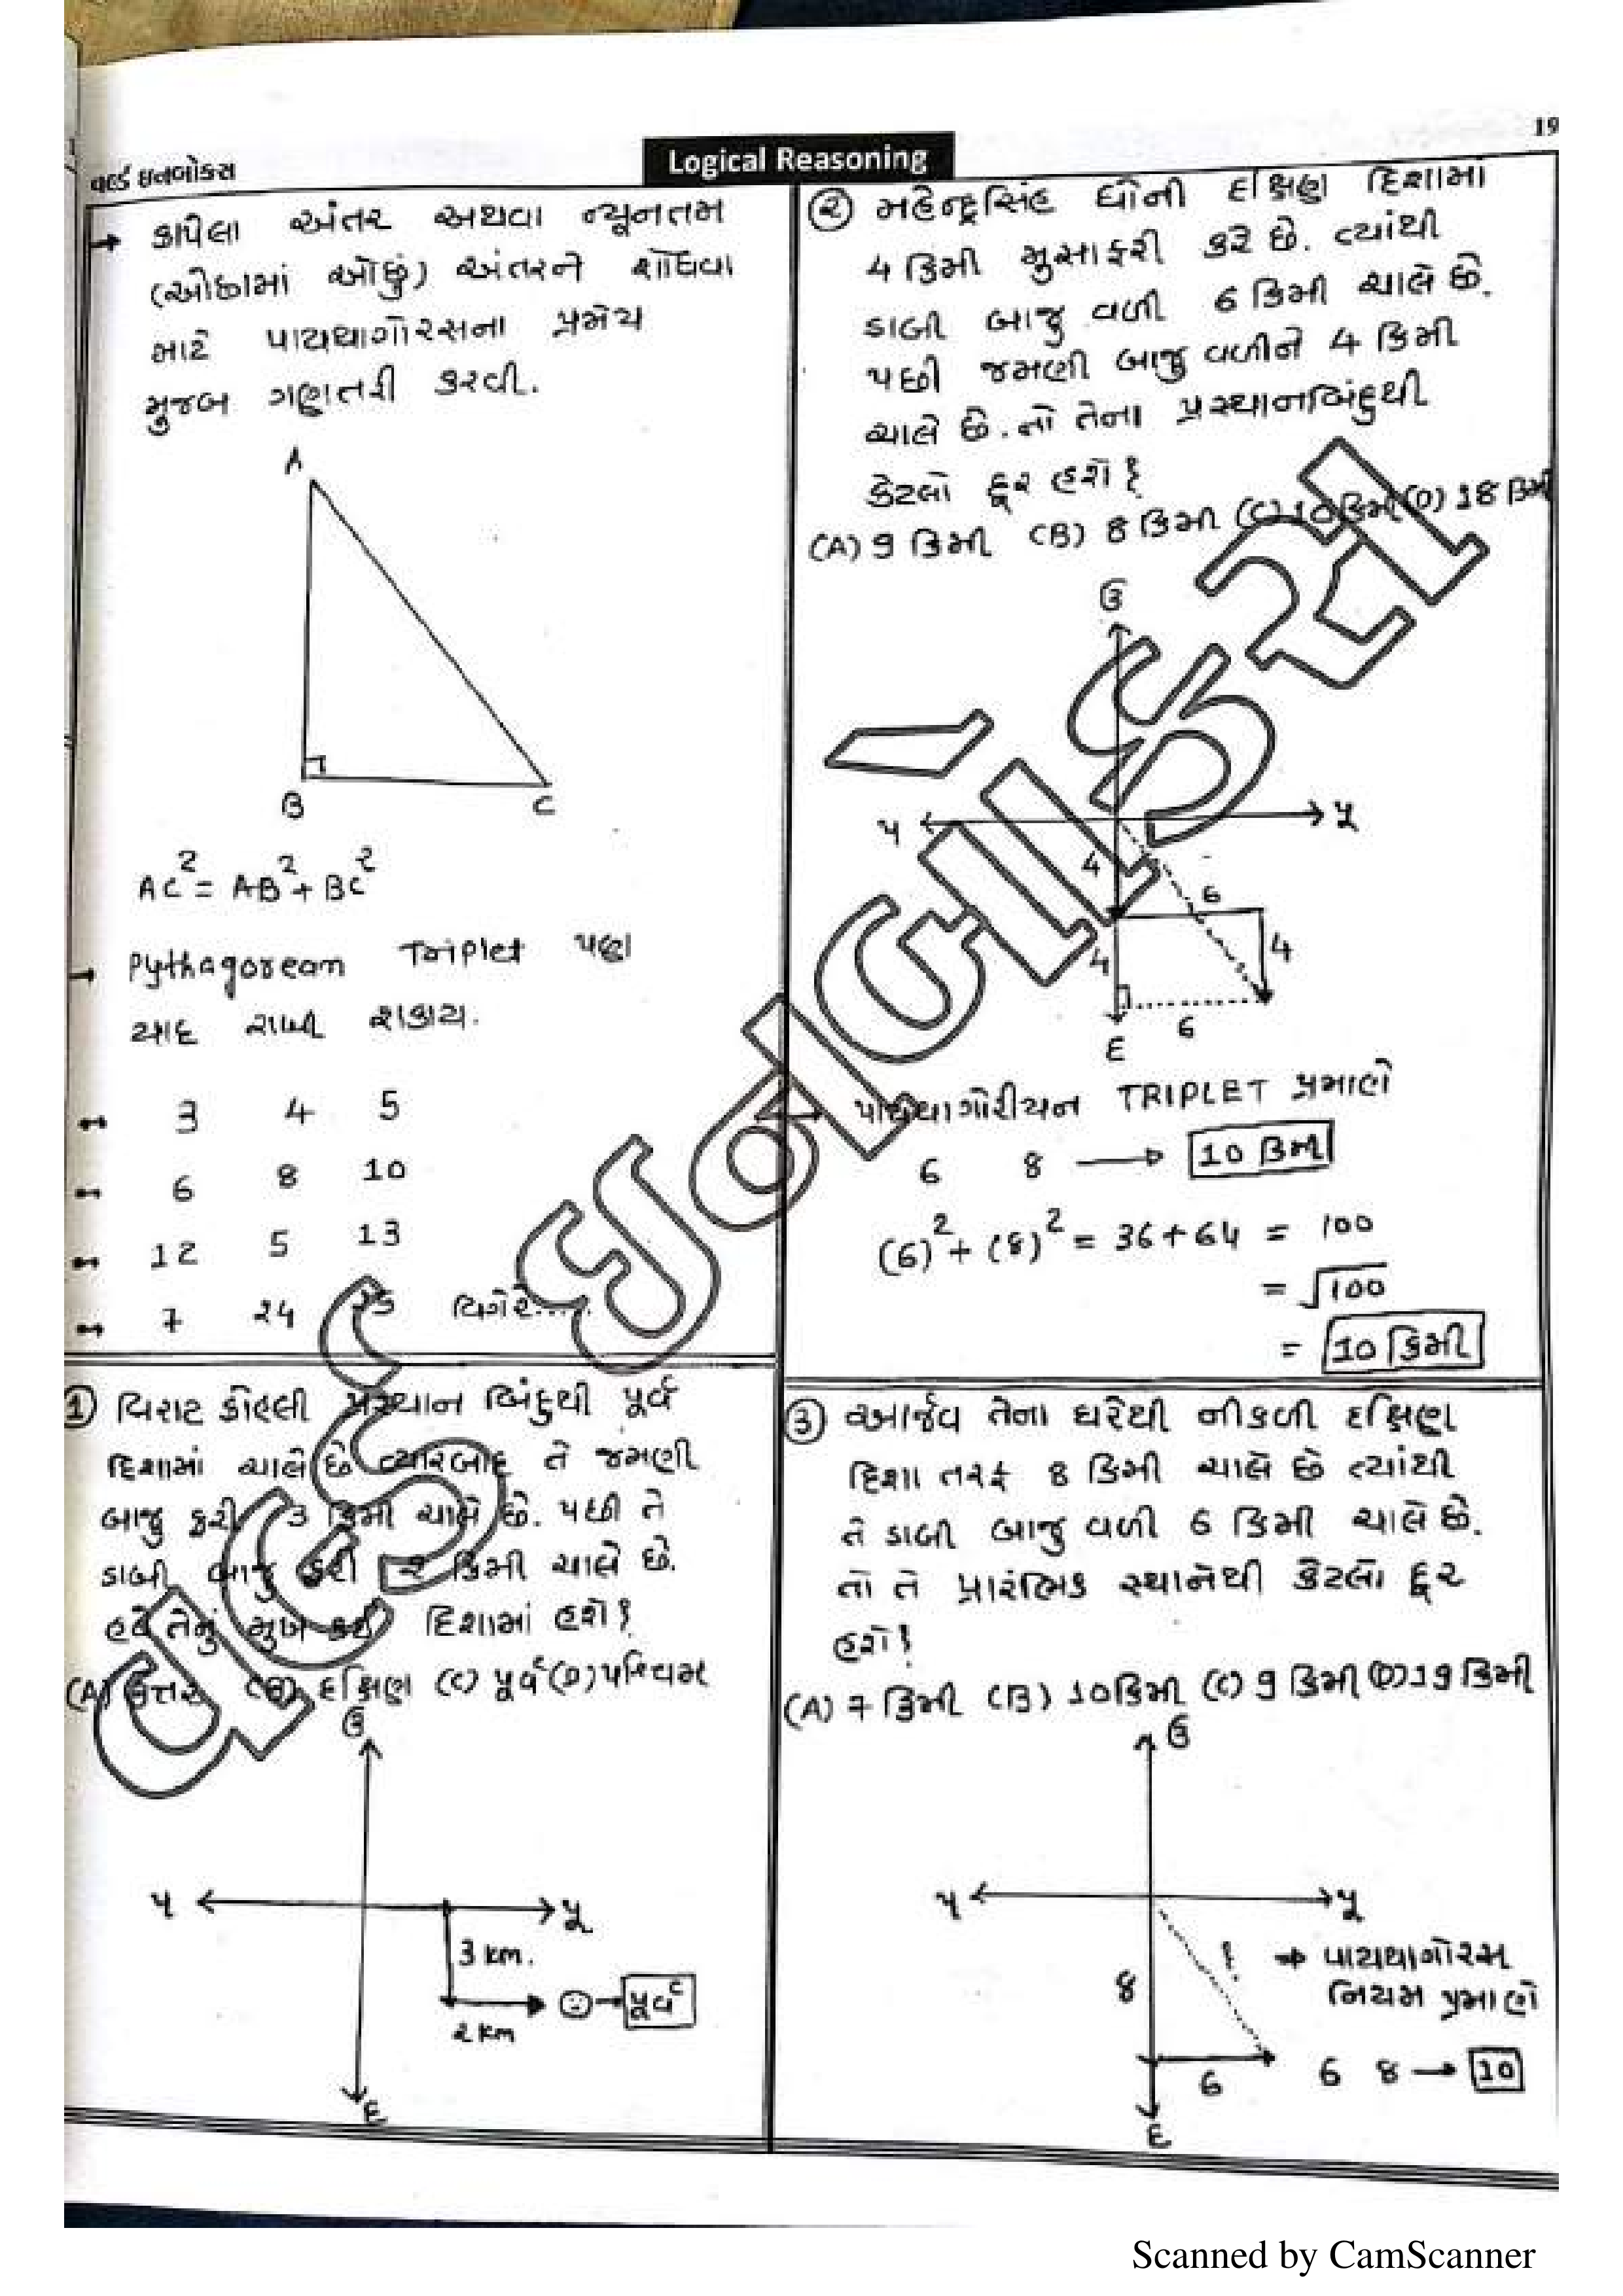 19
વર્લ્ડ ઇનબોક્સ
Logical Reasoning
→ કાપેલા અંતર અથવા ન્યૂનતમ
(ઓછામાં ઓછું) અંતરને શોધવા
માટે પાયથાગોરસના પ્રમેય
મુજબ ગણતરી કરવી.
A
B C
AC² = AB² + BC²
→ Pythagorean Triplet પણ
યાદ રાખી શકાય.
3 4 5
6 8 10
12 5 13
7 24 25 વિગેરે.....
① વિરાટ કોહલી પ્રસ્થાન બિંદુથી પૂર્વ
દિશામાં ચાલે છે ત્યારબાદ તે જમણી
બાજુ ફરી 3 કિમી ચાલે છે. પછી તે
ડાબી બાજુ ફરી 2 કિમી ચાલે છે.
હવે તેનું મુખ કઈ દિશામાં હશે?
(A) ઉત્તર (B) દક્ષિણ (C) પૂર્વ (D) પશ્ચિમ
ઉ
પ પૂ
3 km.
2 km
પૂર્વ
દ
② મહેન્દ્રસિંહ ધોની દક્ષિણ દિશામાં
4 કિમી મુસાફરી કરે છે. ત્યાંથી
ડાબી બાજુ વળી 6 કિમી ચાલે છે.
પછી જમણી બાજુ વળીને 4 કિમી
ચાલે છે. તો તેના પ્રસ્થાનબિંદુથી
કેટલો દૂર હશે?
(A) 9 કિમી (B) 8 કિમી (C) 10 કિમી (D) 18 કિમી
ઉ
પ પૂ
4
6
4 4
6
દ
→ પાયથાગોરીયન TRIPLET પ્રમાણે
6 8 → 10 કિમી
(6)² + (8)² = 36 + 64 = 100
= √100
= 10 કિમી
③ આર્જવ તેના ઘરેથી નીકળી દક્ષિણ
દિશા તરફ 8 કિમી ચાલે છે ત્યાંથી
તે ડાબી બાજુ વળી 6 કિમી ચાલે છે.
તો તે પ્રારંભિક સ્થાનેથી કેટલો દૂર
હશે?
(A) 7 કિમી (B) 10 કિમી (C) 9 કિમી (D) 19 કિમી
ઉ
પ પૂ
8 ? → પાયથાગોરસ
નિયમ પ્રમાણે
6 6 8 → 10
દ
Scanned by CamScanner